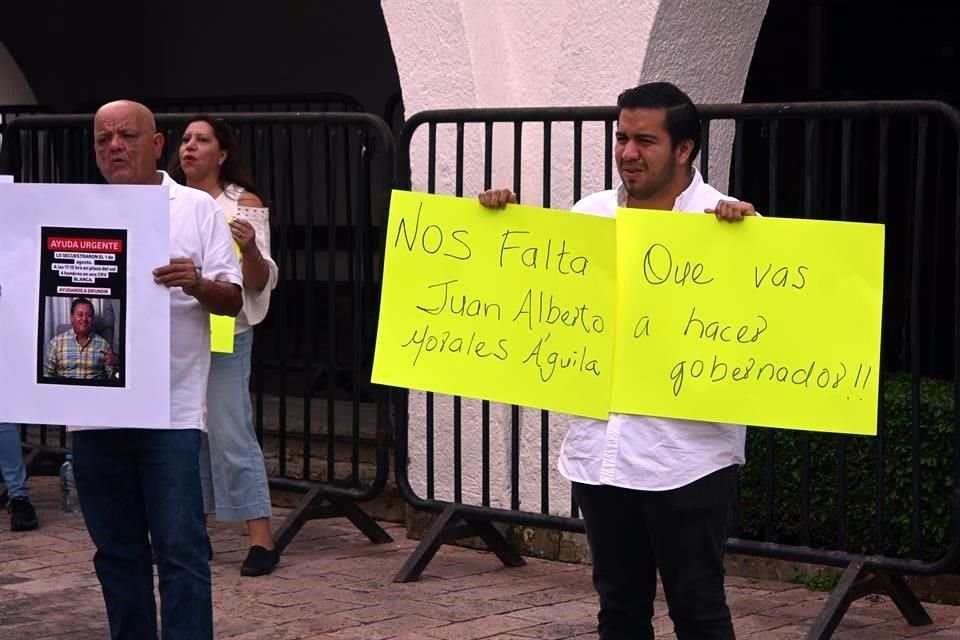 AYUDA URGENTE
LO SECUESTRARON EL 1 de
agosto.
A las 17:15 hrs en plaza del sol
4 hombres en una CRV
BLANCA.
AYUDANOS A DIFUNDIR
NOS Falta
Juan Alberto
Morales Águila
Que vas
a hacer
gobernador!!